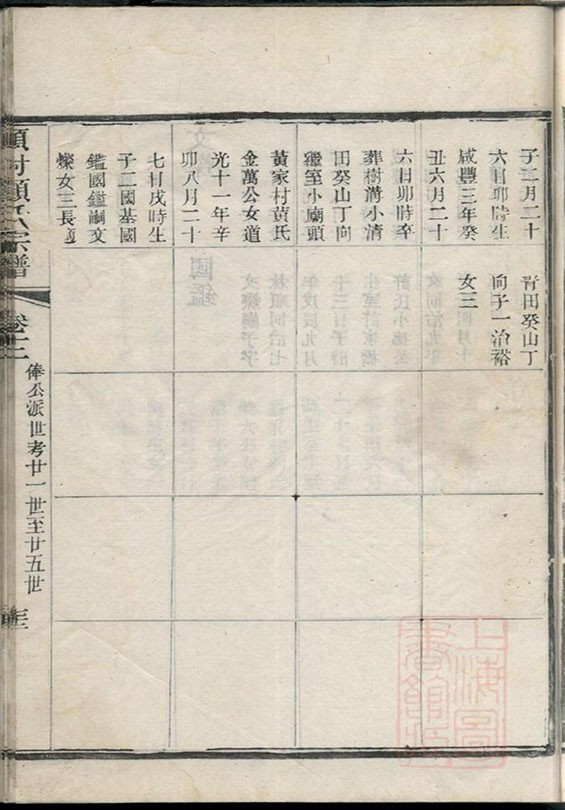 子二月二十
六日卯時生
咸豐三年癸
丑六月二十
六日卯時卒
葬樹灣小清
田癸山丁向
繼室小廟頭
黃家村黃氏
金萬公女道
光十一年辛
卯八月二十
七日戌時生
子二國基國
鑑國鑑嗣文
燦女三長適
田癸山丁
向子一治裕
女三
顧氏宗譜
卷十二
俸公派世考廿一世至廿五世
上海圖
書館藏